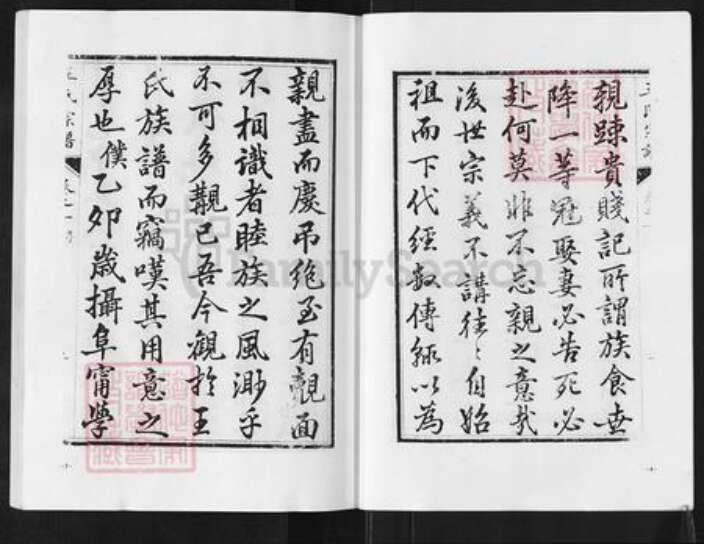 親踈貴賤記所謂族食世
降一等冠娶妻必告死必
赴何莫非不忘親之意哉
後世宗義不講往〻自始
祖而下代經數傳緜以為
親盡而慶吊絶至有覿面
不相識者睦族之風渺乎
不可多覯已吾今觀於王
氏族譜而竊嘆其用意之
厚也僕乙夘歲攝阜甯學
王氏宗譜
FamilySearch